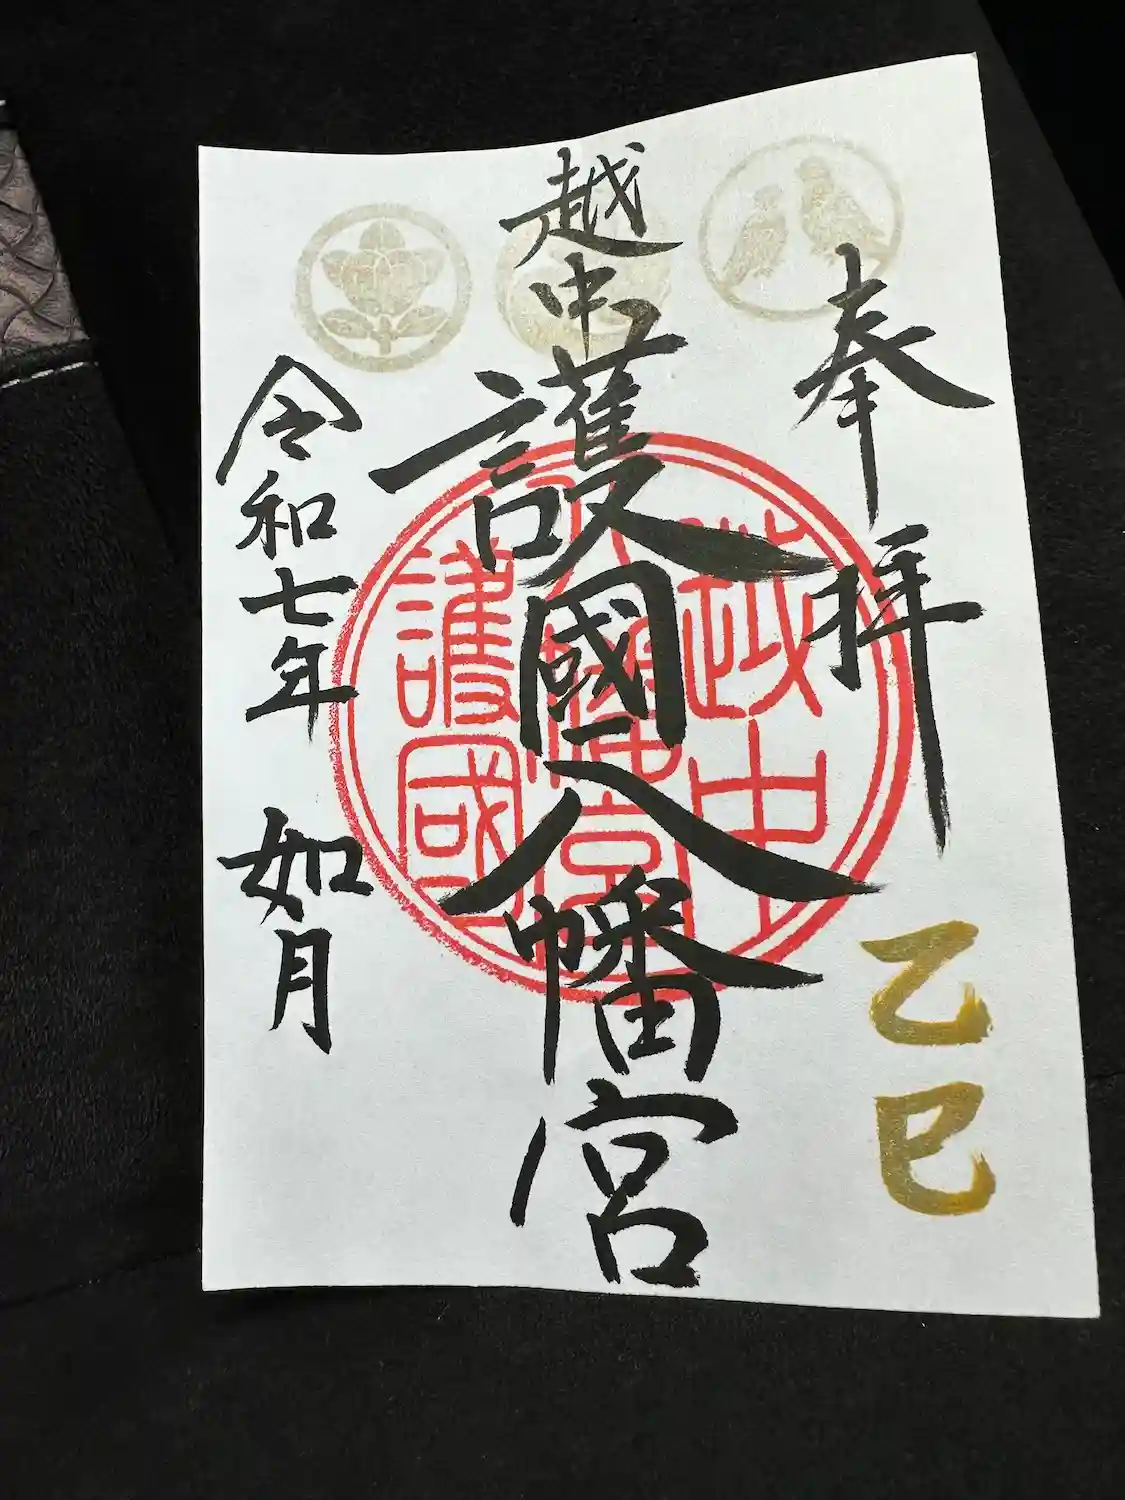 奉拝
乙巳
越中
護國八幡宮
越中
八幡宮
護國
令和七年 如月